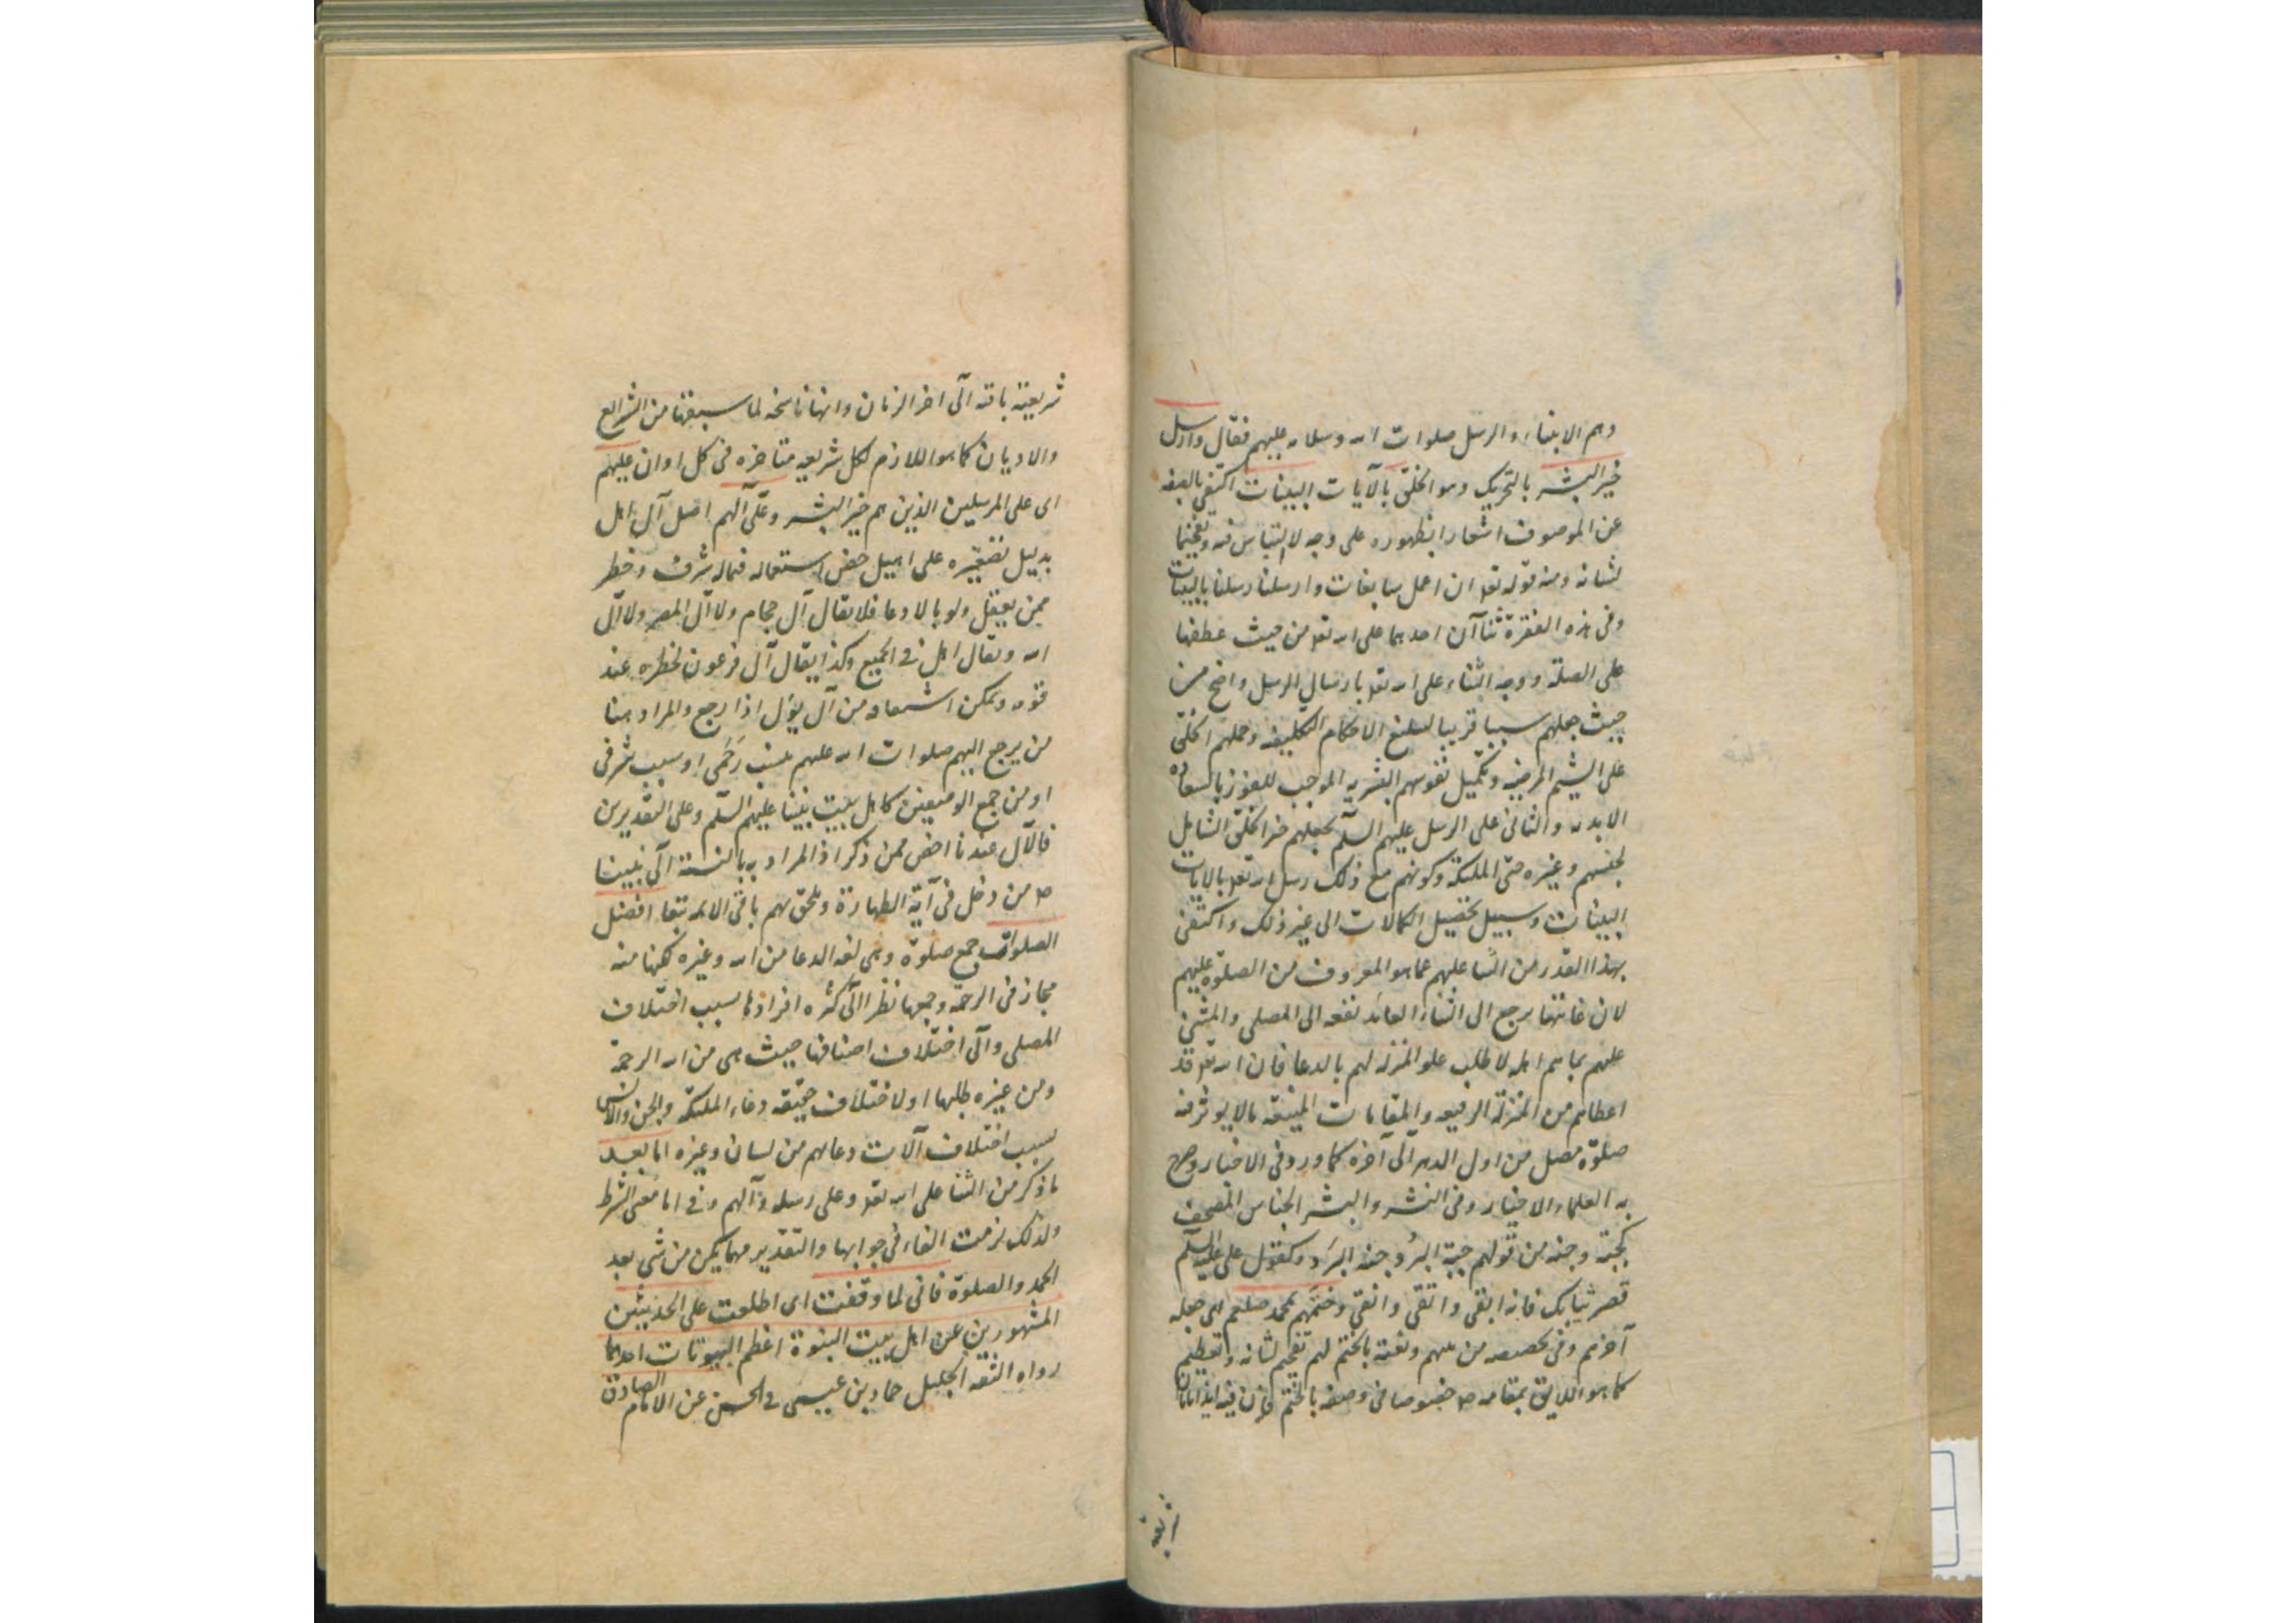 وهم الانبياء والرسل صلوات الله وسلامه عليهم فقال وارسل
خير البشر بالتحريك وهو الخلق بالآيات البينات اكتفى بالصفة
عن الموصوف اشعارا بظهوره على وجه لا التباس فيه وتفخيما
لشانه ومنه قوله تعالى ان اعمل سابغات وارسلنا رسلنا بالبينات
وفى هذه الفقرة ثناآن احدهما على الله تعالى من حيث عطفها
على الصلة ووجه الثناء على الله تعالى بارسال الرسل واضح من
حيث جعلهم سببا قريبا لتبليغ الاحكام التكليفية وحملهم الخلق
على الشيم المرضية وتكميل نفوسهم البشرية الموجب للفوز بالسعادة
الابدية والثانى على الرسل عليهم السلم بجعلهم خير الخلق الشامل
لجنسهم وغيره حتى الملئكة وكونهم مع ذلك رسل الله تعالى بالايات
البينات وسبيل تحصيل الكمالات الى غير ذلك واكتفى
بهذا القدر من الثنا عليهم عما هو المعروف من الصلوة عليهم
لان غايتها يرجع الى الثناء العائد نفعه الى المصلى والمثنى
عليهم بما هم اهله لا طلب علو المنزلة لهم بالدعا فان الله تعالى قد
اعطاهم من المنزلة الرفيعة والمقامات المنيعة مالا يؤثر فيه
صلوة مصل من اول الدهر الى آخره كما ورد فى الاخبار وصرح
به العلماء الاخيار وفى النشر والبشر الجناس المصحف
كجبة وجنة من قولهم جبة البُرد جنة البَرد وكقول على عليه السلم
قصر ثيابك فانه ابقى واتقى وانقى وختمهم بمحمد صلعم اى جعله
آخرهم وفى تخصيصه من بينهم ونعته بالختم لهم تفخيم لشانه وتعظيم
كما هو اللايق بمقامه ص خصوصا فى وصفه بالختم فان فيه ايذانا بان
شريعته باقية الى اخر الزمان وانها ناسخة لما سبقها من الشرايع
والاديان كما هو اللازم لكل شريعة متاخرة فى كل اوان عليهم
اى على المرسلين الذين هم خير البشر وعلى آلهم اصل آل اهل
بدليل تصغيره على اهيل خص استعماله فيما له شرف وخطر
ممن يعقل ولو بالادعا فلا يقال آل حجام ولا آل المصر ولا آل
الله ويقال اهل فى الجميع وكذا يقال آل فرعون لخطره عند
قومه ويمكن اشتقاقه من آل يؤل اذا رجع والمراد هنا
من يرجع اليهم صلوات الله عليهم بنسب رَحَمى او سبب شرفى
او من جمع الوصفين كاهل بيت نبينا عليهم السلم وعلى التقديرين
فالآل عندنا اخص ممن ذكر اذ المراد به بالنسبة الى نبينا
ص من دخل فى آية الطهارة ويلحق بهم باقى الائمة تبعا افضل
الصلوات جمع صلوة وهى لغة الدعا من الله وغيره لكنها منه
مجاز فى الرحمة وجمعها نظرا الى كثرة افرادها بسبب اختلاف
المصلى والى اختلاف اصنافها حيث هى من الله الرحمة
ومن غيره طلبها او لاختلاف حقيقة دعاء الملئكة والجن والانس
بسبب اختلاف آلات دعائهم من لسان وغيره اما بعد
ما ذكر من الثنا على الله تعالى وعلى رسله وآلهم وفى اما معنى الشرط
ولذلك لزمت الفاء فى جوابها والتقدير مهما يكن من شى بعد
الحمد والصلوة فانى لما وقفت اى اطلعت على الحديثين
المشهورين عن اهل بيت النبوة اعظم البيوتات احدهما
رواه الثقة الجليل حماد بن عيسى فى الحسن عن الامام الصادق